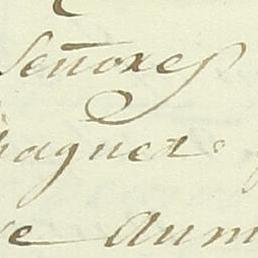 Señores
haguez
e aun